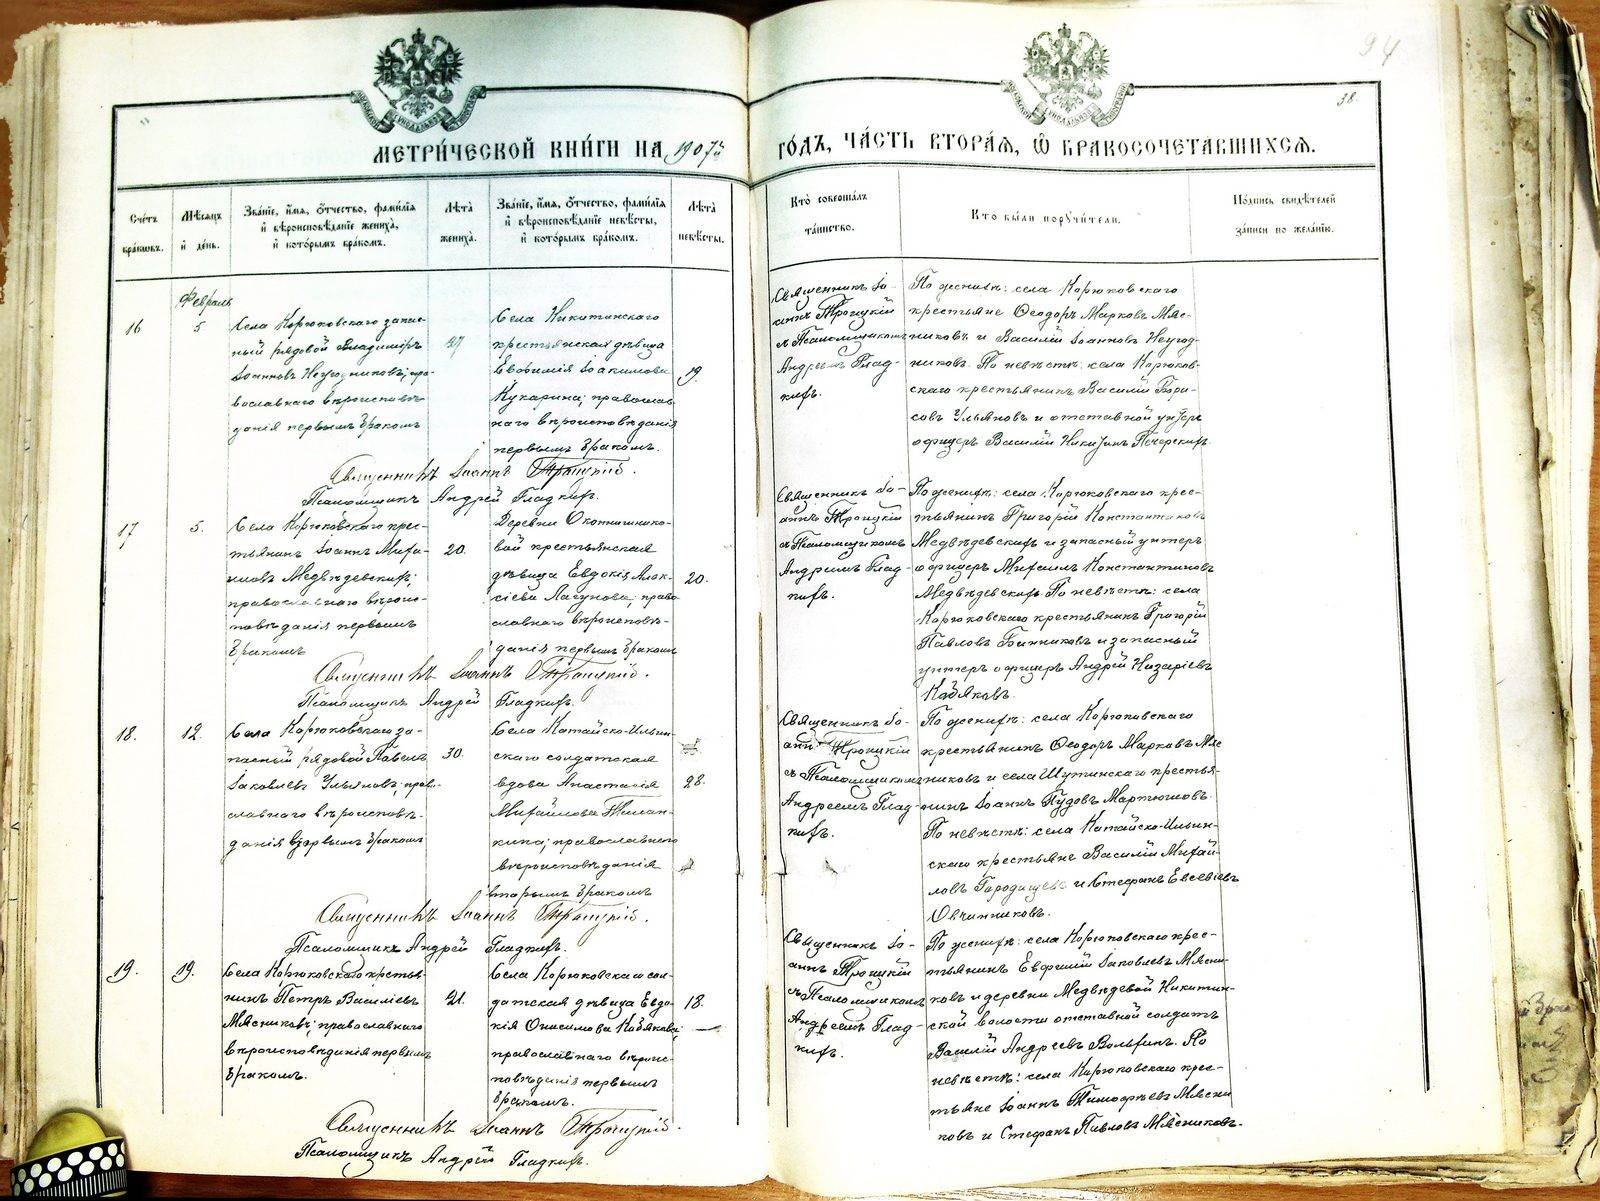 94
38.
МЕТРИ́ЧЕСКОЙ КНИ́ГИ НА 1907й
ГО́ДЪ, ЧА́СТЬ ВТОРА́Я, Ѡ҆ БРАКОСОЧЕТА́ВШИХСѦ.
Сче́тъ
бра́ковъ.
Мѣ́сѧцъ
и҆ де́нь.
Зва́нїе, и҆́мѧ, ѻ҆́тчество, фами́лїѧ
и҆ вѣроисповѣ́данїе жениха̀,
и҆ кото́рымъ бра́комъ.
Лѣ́та
жениха̀.
Зва́нїе, и҆́мѧ, ѻ҆́тчество, фами́лїѧ
и҆ вѣроисповѣ́данїе невѣ́сты,
и҆ кото́рымъ бра́комъ.
Лѣ́та
невѣ́сты.
Кто̀ соверша́лъ
та́инство.
Кто̀ бы́ли порꙋчи́тели.
По́дпись свидѣ́телей
за́писи по жела́нїю.
Февраль
16
5
Села Корюковскаго запас-
ный рядовой Владиміръ
Іоанновъ Неугодниковъ; пра-
вославнаго вѣроисповѣ-
данія первымъ бракомъ
27
Села Никитинскаго
крестьянская дѣвица
Евѳимія Іоакимова
Кукарина; православ-
наго вѣроисповѣданія
первымъ бракомъ.
19.
Священникъ Іо-
аннъ Троицкій
съ Псаломщикомъ
Андреемъ Глад-
кихъ.
По женихѣ: села Корюковскаго
крестьяне Ѳеодоръ Марковъ Мяс-
никовъ и Василій Іоанновъ Неугод-
никовъ. По невѣстѣ: села Корюков-
скаго крестьянинъ Василій Бори-
совъ Ульяновъ и отставной унтеръ
офицеръ Василій Никитинъ Печерскихъ.
Священникъ Іоаннъ Троицкій.
Псаломщикъ Андрей Гладкихъ.
17
5.
Села Корюковскаго крес-
тьянинъ Іоаннъ Миха-
иловъ Медвѣдевскихъ;
православнаго вѣроис-
повѣданія первымъ
бракомъ
20.
Деревни
крестьянская
дѣвица Евдокія Алек-
сіева Лагунова; право-
славнаго вѣроисповѣ-
данія первымъ бракомъ
20.
Священникъ Іо-
аннъ Троицкій
съ Псаломщикомъ
Андреемъ Глад-
кихъ.
По женихѣ: села Корюковскаго крес-
тьянинъ Григорій Константиновъ
Медвѣдевскихъ и запасный унтеръ
офицеръ Михаилъ Константиновъ
Медвѣдевскихъ. По невѣстѣ: села
Корюковскаго крестьянинъ Григорій
Павловъ и запасный
унтеръ офицеръ Андрей Назаріевъ
Кобяковъ.
Священникъ Іоаннъ Троицкій.
Псаломщикъ Андрей Гладкихъ.
18.
12.
Села Корюковскаго за-
пасный рядовой Павелъ
Іаковлевъ Ульяновъ; прав-
славнаго вѣроисповѣ-
данія первымъ бракомъ
30.
Села Катайско-Ильин-
скаго солдатская
вдова Анастасія
Михайлова
православнаго
вѣроисповѣданія
вторымъ бракомъ
28.
Священникъ Іо-
аннъ Троицкій
съ Псаломщикомъ
Андреемъ Глад-
кихъ.
По женихѣ: села Корюковскаго
крестьянинъ Ѳеодоръ Марковъ Мяс
никовъ и села Шутинскаго крестья-
нинъ Іоаннъ Пудовъ Мартюшовъ.
По невѣстѣ: села Катайско-Ильин-
скаго крестьяне Василій Михай-
ловъ Городищевъ и Стефанъ Евсевіевъ
Овчинниковъ.
Священникъ Іоаннъ Троицкій.
Псаломщикъ Андрей Гладкихъ.
19.
19.
Села Корюковскаго крестья-
нинъ Петръ Василіевъ
Мясниковъ; православнаго
вѣроисповѣданія первымъ
бракомъ.
21.
Села Корюковскаго сол-
датская дѣвица Евдо-
кія Онисимова Кобякова;
православнаго вѣроис-
повѣданія первымъ
бракомъ.
18.
Священникъ Іо-
аннъ Троицкій
съ Псаломщикомъ
Андреемъ Глад-
кихъ.
По женихѣ: села Корюковскаго крес-
тьянинъ Евфимій Іаковлевъ Мясни-
ковъ и деревни Медвѣдевой Никитин-
ской волости отставной солдатъ
Василій Андреевъ Вольхинъ. По
невѣстѣ: села Корюковскаго крес-
тьяне Іоаннъ Тимофѣевъ Мясни
ковъ и Стефанъ Павловъ Мясниковъ.
Священникъ Іоаннъ Троицкій.
Псаломщикъ Андрей Гладкихъ.